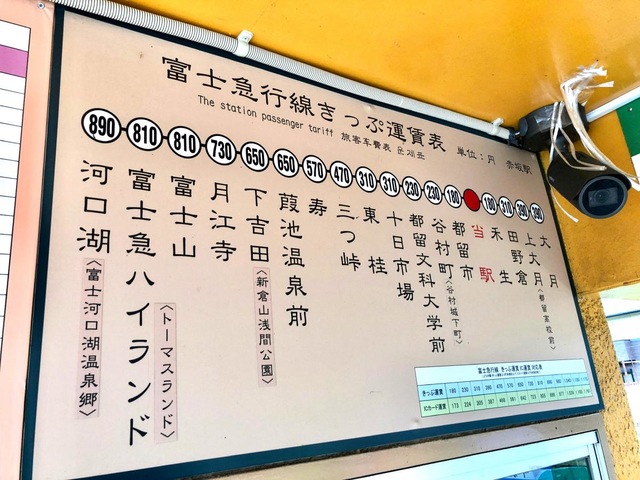 富士急行線きっぷ運賃表
The station passenger tariff 旅客车費表 운재표
単位:円 赤坂駅
890 810 810 730 650 650 570 470 310 310 230 230 180 180 310 390 390
河口湖
〈富士河口湖温泉郷〉
富士急ハイランド
〈トーマスランド〉
富士山
月江寺
下吉田
〈新倉山浅間公園〉
葭池温泉前
寿
三つ峠
東桂
十日市場
都留文科大学前
谷村町
〈谷村城下町〉
都留市
当駅
禾生
田野倉
上大月
〈都留高校前〉
大月
富士急行線 きっぷ運賃 IC運賃 対応表
きっぷ運賃
ICカード運賃